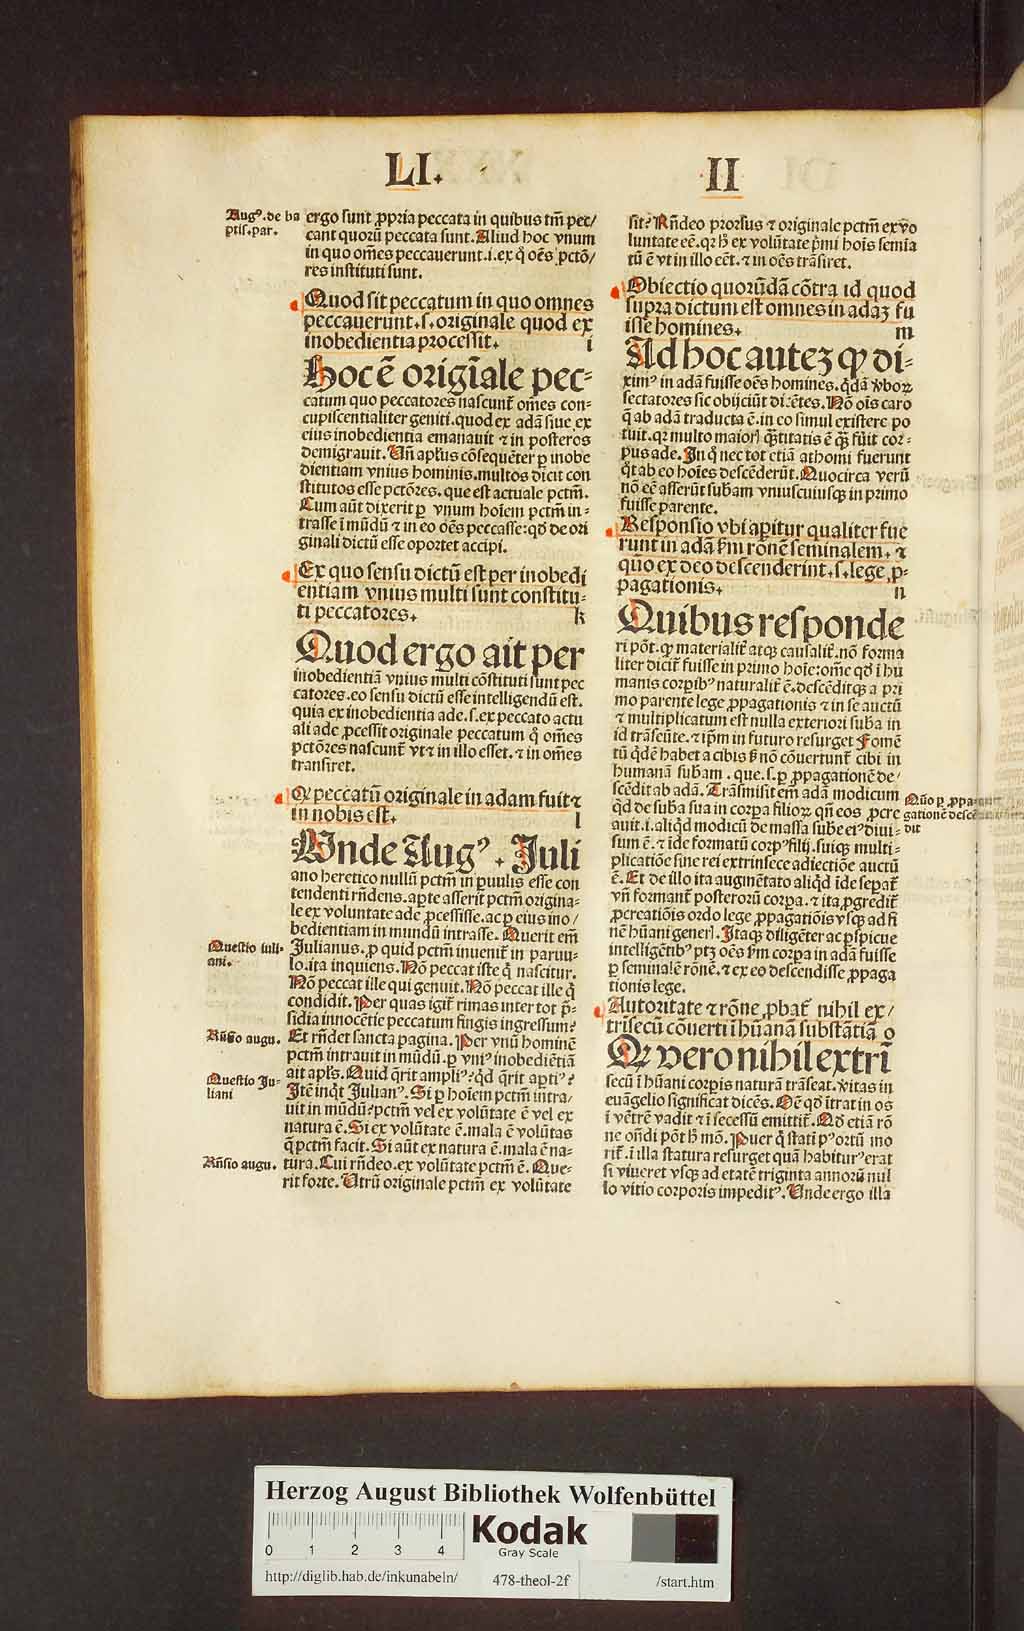 LI.
II
Augꝰ. de ba
ptis. par.
ergo sunt ꝓpria peccata in quibus tm̄ pec/
cant quorū peccata sunt. Aliud hoc vnum
in quo om̄es peccauerunt .i. ex q̊ oēs pctō/
res instituti sunt.
Quod sit peccatum in quo omnes
peccauerunt. s. originale quod ex
inobedientia processit. i
Hoc ē origīale pec-
catum quo peccatores nascunt̄ om̄es con-
cupiscentialiter geniti. quod ex adā siue ex
eius inobedientia emanauit ⁊ in posteros
demigrauit. Un̄ apl̄us cōsequēter ꝑ inobe
dientiam vnius hominis. multos dicit con
stitutos esse pctōres. que est actuale pctm̄.
Cum aūt dixerit ꝑ vnum hoīem pctm̄ in-
trasse ī mūdū ⁊ in eo oēs peccasse: qd̄ de ori
ginali dictū esse oportet accipi.
Ex quo sensu dictū est per inobedi
entiam vnius multi sunt constitu-
ti peccatores. k
Quod ergo ait per
inobedientiā vnius multi cōstituti sunt pec
catores. eo sensu dictū esse intelligendū est.
quia ex inobedientia ade. s. ex peccato actu
ali ade ꝓcessit originale peccatum q̊ om̄es
pctōres nascunt̄ vt ⁊ in illo esset. ⁊ in om̄es
transiret.
Ꝙ peccatū originale in adam fuit ⁊
in nobis est. l
Unde Augꝰ. Juli
ano heretico nullū pctm̄ in ꝑuulis esse con
tendenti rn̄dens. aꝑte asserit pctm̄ origina-
le ex voluntate ade ꝓcessisse. ac ꝑ eius ino/
bedientiam in mundū intrasse. Querit em̄
Questio iuli-
ani.
Julianus. ꝑ quid pctm̄ inuenit̄ in paruu-
lo. ita inquiens. Nō peccat iste q̇ nascitur.
Nō peccat ille qui genuit. Nō peccat ille q̇
condidit. Per quas igit̄ rimas inter tot p̄-
sidia innocētie peccatum fingis ingressum?
Rn̄sio augu.
Et rn̄det sancta pagina. Per vnū hominē
pctm̄ intrauit in mūdū. ꝑ vniꝰ inobediētiā
ait apl̄s. Quid q̄rit ampliꝰ? qd̄ q̄rit aꝑtiꝰ?
Questio Ju-
liani
Itē inq̇t Julianꝰ. Si ꝑ hoīem pctm̄ intra/
uit in mūdū? pctm̄ vel ex volūtate ē vel ex
natura ē. Si ex volūtate ē. mala ē volūtas
q̄ pctm̄ facit. Si aūt ex natura ē. mala ē na-
Rn̄sio augu.
tura. Cui rn̄deo. ex volūtate pctm̄ ē. Que-
rit forte. Utrū originale pctm̄ ex volūtate
sit? Rn̄deo prorsus ⁊ originale pctm̄ ex vo
luntate eē. qꝛ hͦ ex volūtate p̄mi hoīs semia
tū ē vt in illo cēt. ⁊ in oēs trāsiret.
Obiectio quorūdā cōtra id quod
supra dictum est omnes in adaꝫ fu
isse homines. m
Ad hoc auteꝫ ꝙ di-
ximꝰ in adā fuisse oēs homines. q̇dā v̓boꝝ
sectatores sic obijciūt dicētes. Nō oīs caro
q̄ ab adā traducta ē. in eo simul existere po
tuit. qꝛ multo maioris q̄titatis ē q̄ fuit cor-
pus ade. In q̊ nec tot etiā athomi fuerunt
q̊t ab eo hoīes descēderūt. Quocirca verū
nō eē asserūt subam vniuscuiusqꝫ in primo
fuisse parente.
Responsio vbi aperitur qualiter fue
runt in adā ẜm rōnē seminalem. ⁊
quō ex deo descenderint. s. lege ꝓ-
pagationis. n
Quibus responde
ri pōt. ꝙ materialit̄ atqꝫ causalit̄. nō forma
liter dicit̄ fuisse in primo hoīe: om̄e qd̄ ī hu
manis corpibꝰ naturalit̄ ē. descēditqꝫ a pri
mo parente lege ꝓpagationis ⁊ in se auctū
⁊ multiplicatum est nulla exteriori suba in
id trāseūte. ⁊ ip̄m in futuro resurget Fomē
tū q̇dē habet a cibis ẜ nō cōuertunt̄ cibi in
humanā subam. que. s. ꝑ ꝓpagationē de/
scēdit ab adā. Trāsmisit em̄ adā modicum
Quō ꝑ ꝓpa-
gationē descē
dit
q̇d de suba sua in corpa filioꝝ qn̄ eos ꝓcre
auit. i. aliq̇d modicū de massa sube eiꝰ diui-
sum ē. ⁊ īde formatū corpꝰ filij. suiqꝫ multi-
plicatiōe sine rei extrinsece adiectiōe auctū
ē. Et de illo ita augmētato aliq̇d īde separat̄
vn̄ formant̄ posterorū corpa. ⁊ ita ꝓgredit̄
ꝓcreatiōis ordo lege ꝓpagatiōis vsqꝫ ad fi
nē hūani generis. Itaqꝫ diligēter ac ꝑspicue
intelligētibꝰ ptꝫ oēs ẜm corpa in adā fuisse
ꝑ seminalē rōnē. ⁊ ex eo descendisse ꝓpaga
tionis lege.
Autoritate ⁊ rōne ꝓbat̄ nihil ex/
trīsecū cōuerti ī hūanā substātiā o
Ꝙ vero nihil extrī
secū ī hūani corpis naturā trāseat. v̓itas in
euāgelio significat dicēs. Oē qd̄ ītrat in os
ī vētrē vadit ⁊ ī secessū emittit̄. Qd̄ etiā rō
ne on̄di pōt hͦ mō. Puer q̇ statī pꝰ ortū mo
rit̄. ī illa statura resurget quā habiturꝰ erat
si viueret vsqꝫ ad etatē triginta annorū nul
lo vitio corporis impeditꝰ. Unde ergo illa
Herzog August Bibliothek Wolfenbüttel
0 1 2 3 4
Kodak
Gray Scale
http://diglib.hab.de/inkunabeln/ 478-theol-2f /start.htm